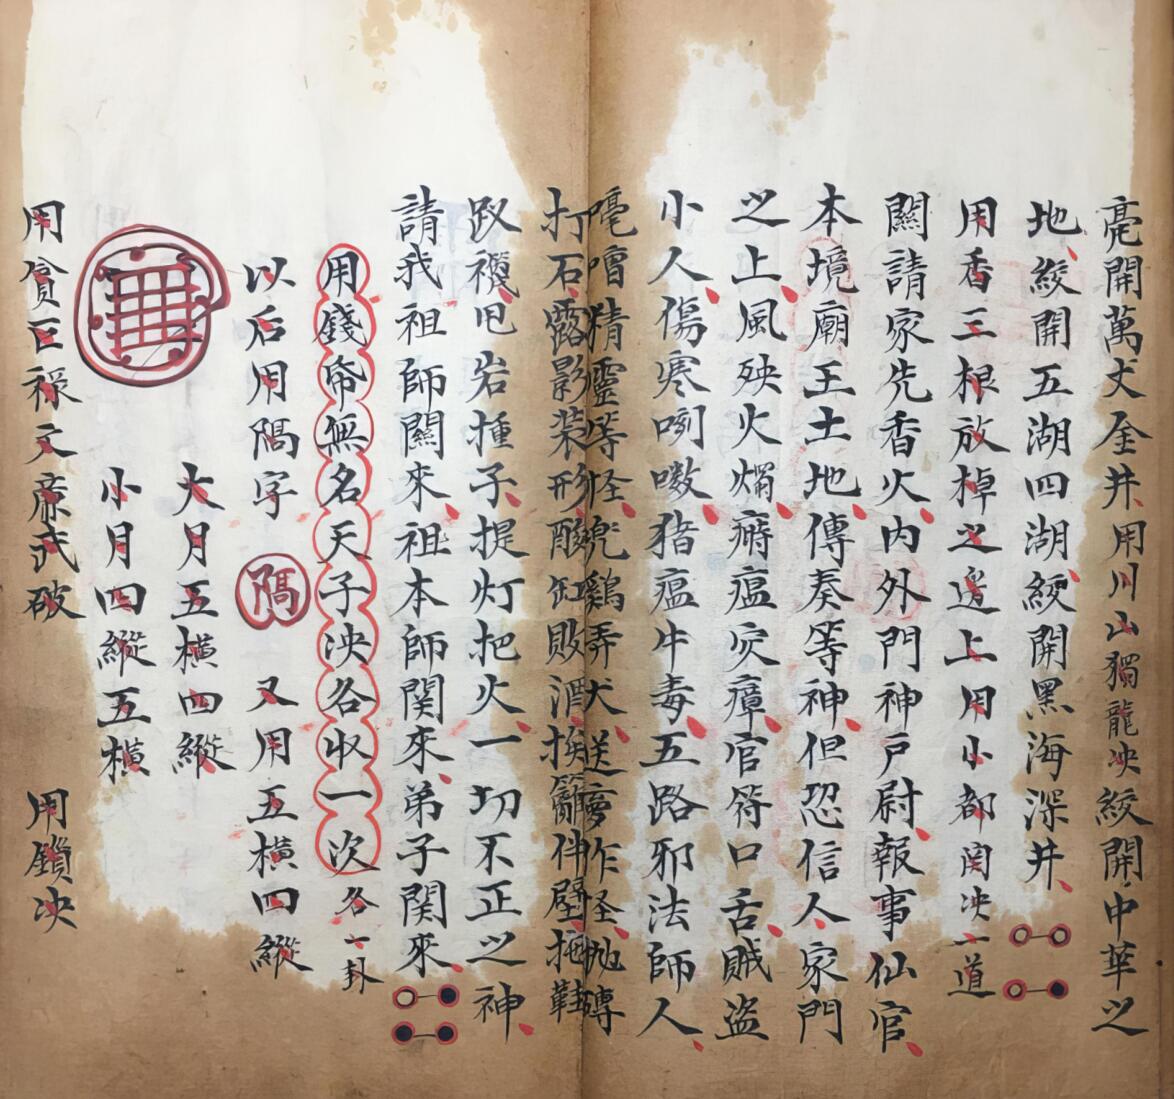 毫開萬丈金井用川山獨龍決絞開中華之
地絞開五湖四湖絞開黑海深井
用香三根放棹之邊上用小都関决一道
關請家先香火內外門神戶尉報事仙官
本境廟王土地傳奏等神但恐信人家門
之上風殃火燭瘠瘟灾瘴官符口舌賊盗
小人傷寒咧嗽猪瘟牛毒五路邪法師人
精靈等怪鷄弄犬送夢作怪抛磚
打石露影装形酸缸敗酒挨籮伸壁拖鞋
岩捶子提灯把火一切不正之神
請我祖師關來祖本師関來弟子関來
用錢帋無名天子決各収一次各一卦
以后用隔字 隔 又用五橫四縱
大月五橫四縱
小月四縱五橫
用貪巨禄文廉武破 用鎖决